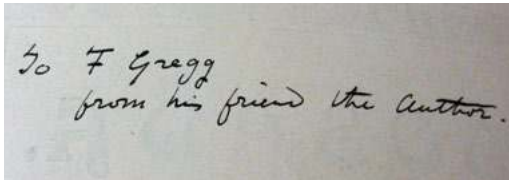 To F Gregg
from his friend the author.